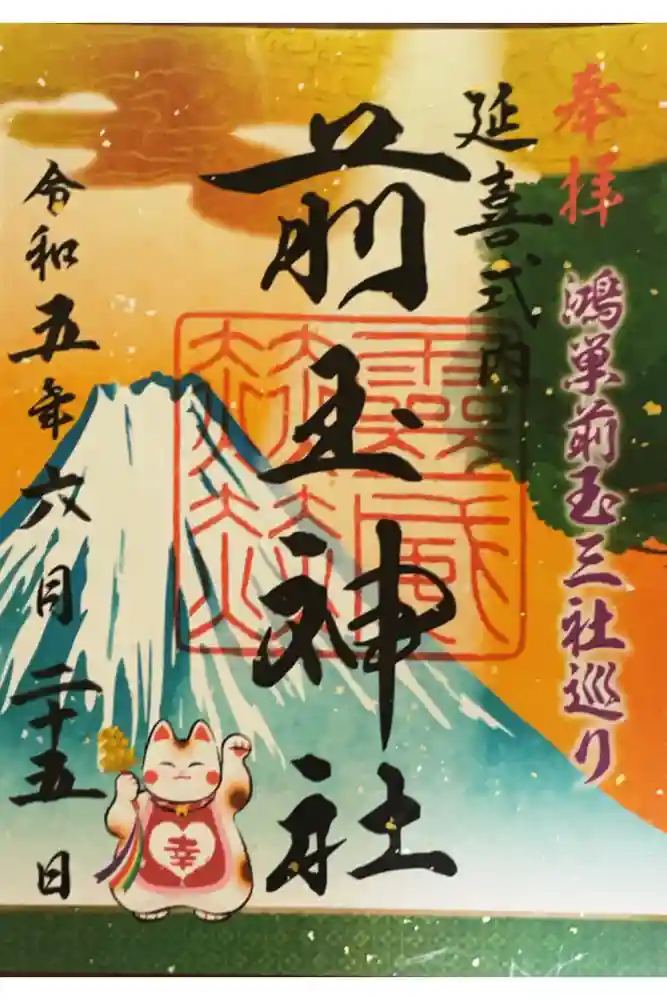 奉拝
鴻巣前玉三社巡り
延喜式内
前玉神社
令和五年六月二十五日
幸